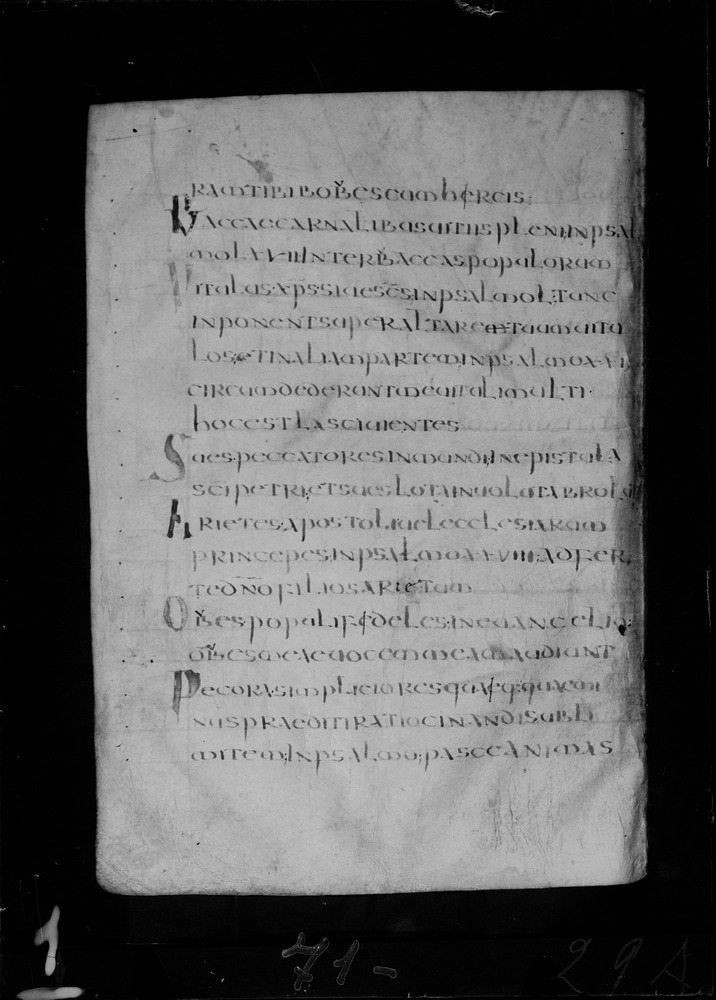 RAMTIBIBOBESCUMhIRCIS;
BACCAECARNALIBUSUITIISPLENI;INPSAL
MOLXVII;INTERBACCASPOPULORUM
VITULUSXPSSIUESCSINPSALMOL;TUNC
INPONENTSUPERALTARETUUMUITU
LOS;ETINALIAMPARTEMINPSALMOXXI
CIRCUMDEDERUNTMEUITULIMULTI·
hOCESTLASCIUIENTES
SUESPECCATORESINMUNDI;INEPISTULA
SCIPETRI;ETSUESLOTAINUOLUTABROLU
ARIETESAPOSTOLIUELECCLESIARUM
PRINCEPESINPSALMOXXVIII;ADFER
TEDNOFILIOSARIETUM
OBESPOPULIFIDELESINEUANGELIO;
OBESMEAEUOCEMMEAMAUDIUNT
PECORASIMPLICIORESQUIQ;QUAEMI
NUSPRAEDITIRATIOCINANDISUBLI
MITEM;INPSALMO;PASCEANIMAS
1
71-
29A